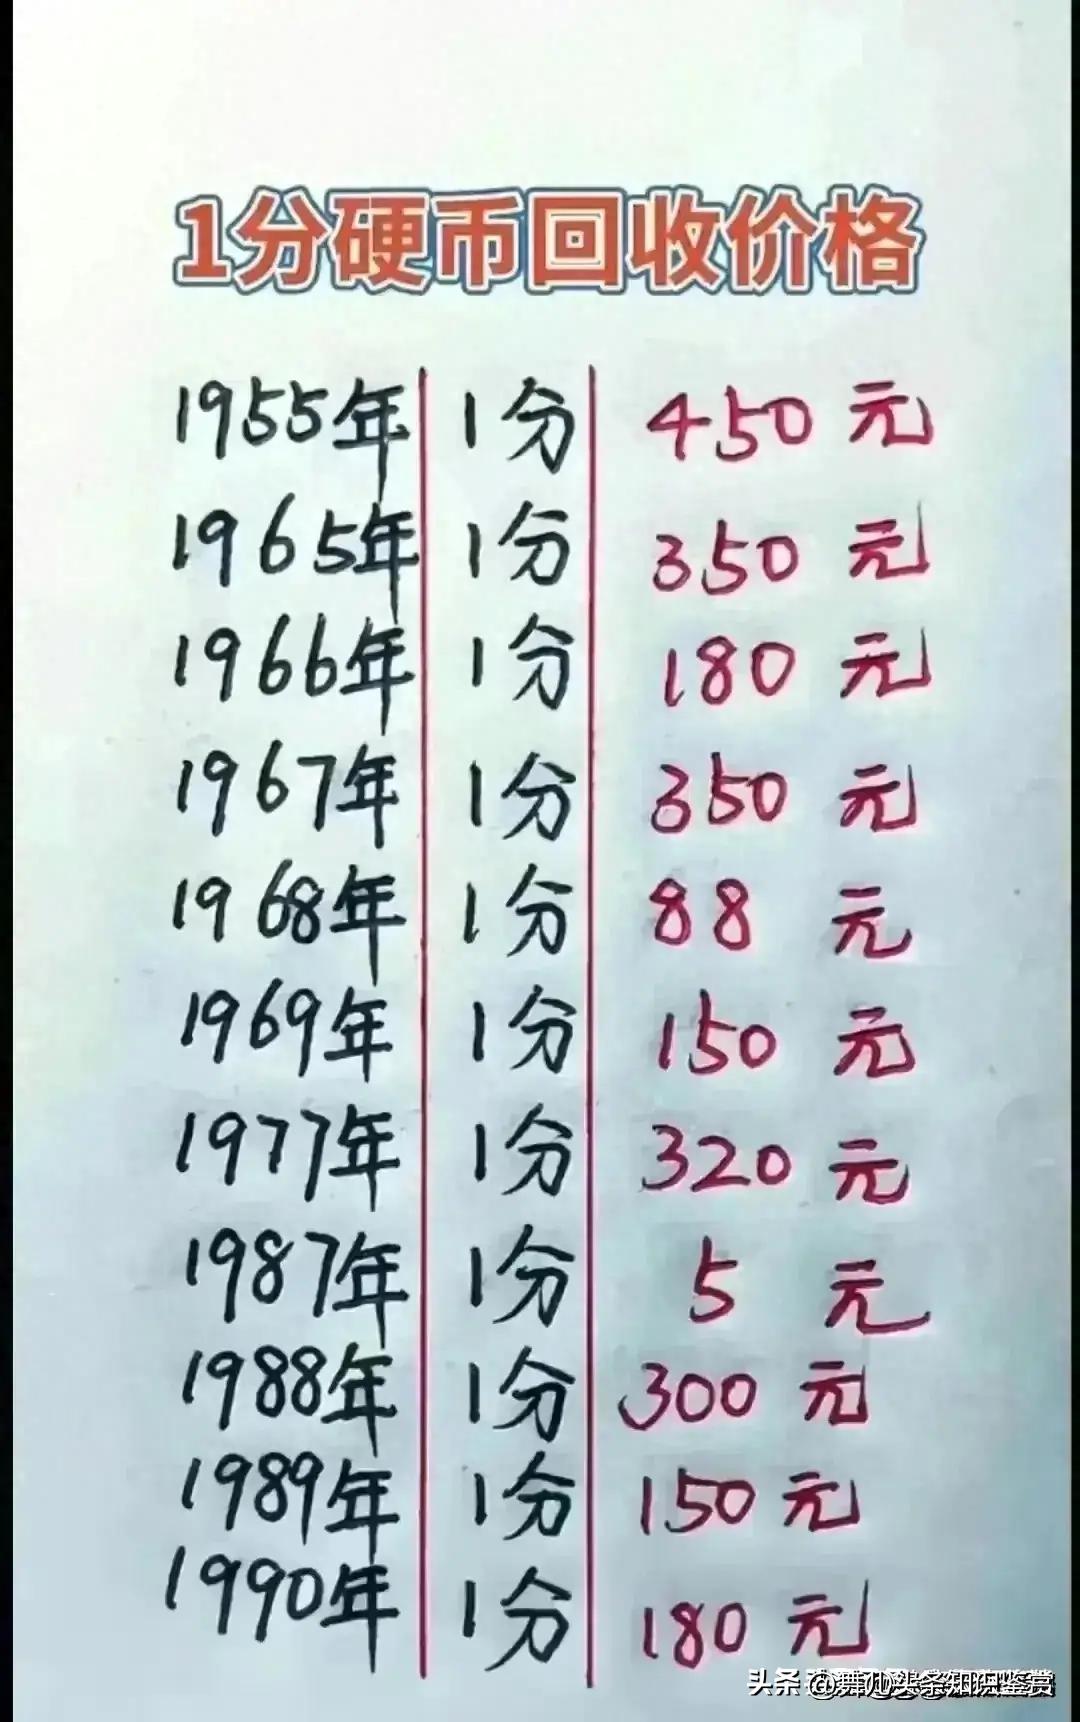 1分硬币回收价格
1955年 1分 450元
1965年 1分 350元
1966年 1分 180元
1967年 1分 350元
1968年 1分 88元
1969年 1分 150元
1977年 1分 320元
1987年 1分 5元
1988年 1分 300元
1989年 1分 150元
1990年 1分 180元
头条